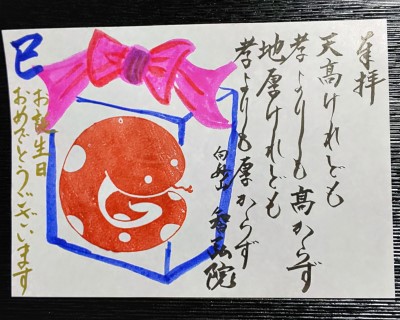 奉拝
天高けれども
孝よりも高からず
地厚けれども
孝よりも厚からず
智弘院
巳
お誕生日
おめでとうございます